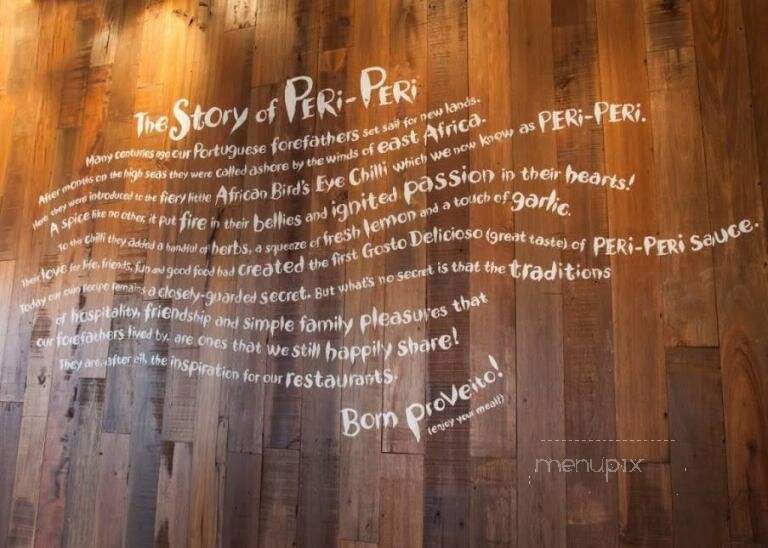 The Story of PERi-PERi
Many centuries ago our Portuguese forefathers set sail for new lands.
After months on the high seas they were called ashore by the winds of east Africa.
Here they were introduced to the fiery little African Bird's Eye Chilli which we now know as PERi-PERi.
A spice like no other, it put fire in their bellies and ignited passion in their hearts!
To the chilli they added a handful of herbs, a squeeze of fresh lemon and a touch of garlic.
Their love for life, friends, fun and good food had created the first Gosto Delicioso (great taste) of PERi-PERi sauce.
Today our own recipe remains a closely-guarded secret. But what's no secret is that the traditions
of hospitality, friendship and simple family pleasures that
our forefathers lived by, are ones that we still happily share!
They are, after all, the inspiration for our restaurants.
Bom Proveito!
(enjoy your meal!)
menupix